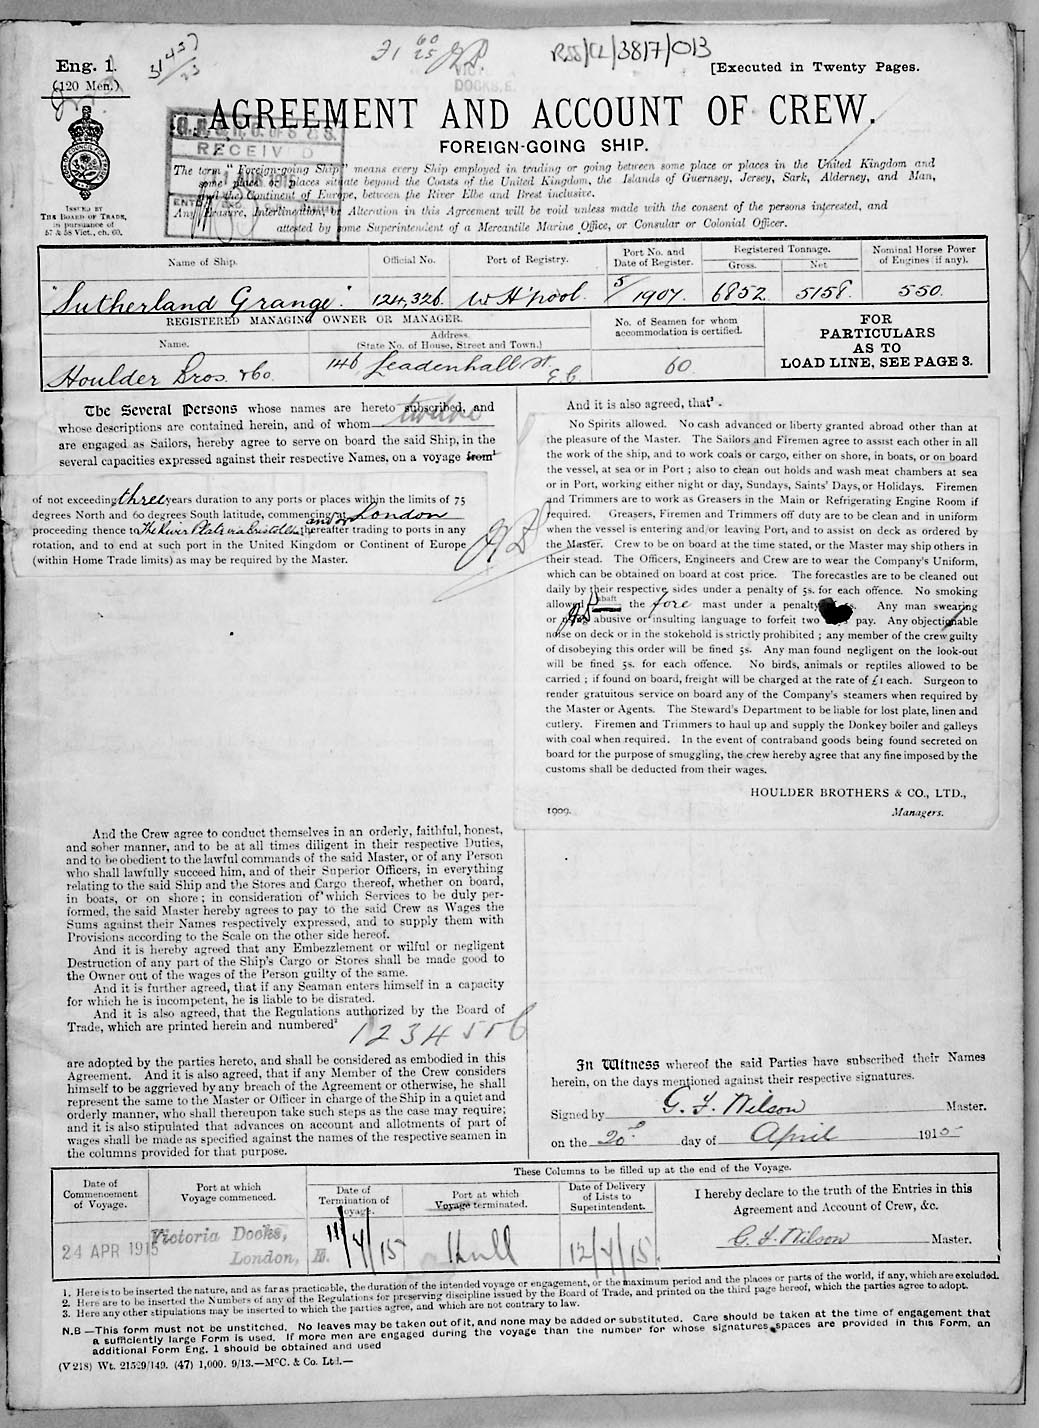 Eng. 1.
(120 Men.)
RSS/CL/3817/013
[Executed in Twenty Pages.
DOCKS, E.
AGREEMENT AND ACCOUNT OF CREW.
FOREIGN-GOING SHIP.
RECEIVED
The term "Foreign-going Ship" means every Ship employed in trading or going between some place or places in the United Kingdom and
some place or places situate beyond the Coasts of the United Kingdom, the Islands of Guernsey, Jersey, Sark, Alderney, and Man,
and the Continent of Europe, between the River Elbe and Brest inclusive.
Any Erasure, Interlineation, or Alteration in this Agreement will be void unless made with the consent of the persons interested, and
attested by some Superintendent of a Mercantile Marine Office, or Consular or Colonial Officer.
ISSUED BY
THE BOARD OF TRADE,
in pursuance of
57 & 58 Vict., ch. 60.
Name of Ship. Official No. Port of Registry. Port No. and Date of Register. Registered Tonnage. Gross. Net. Nominal Horse Power of Engines (if any).
"Sutherland Grange". 124,326. W H'pool. 5/1907. 6852 5158. 550.
REGISTERED MANAGING OWNER OR MANAGER.
Name. Address. (State No. of House, Street and Town.)
No. of Seamen for whom accommodation is certified.
Houlder Bros. & Co. 146 Leadenhall St E.C. 60
FOR
PARTICULARS
AS TO
LOAD LINE, SEE PAGE 3.
The Several Persons whose names are hereto subscribed, and
whose descriptions are contained herein, and of whom twelve
are engaged as Sailors, hereby agree to serve on board the said Ship, in the
several capacities expressed against their respective Names, on a voyage from¹
of not exceeding three years duration to any ports or places within the limits of 75
degrees North and 60 degrees South latitude, commencing at London
proceeding thence to The River Plate via Bristol Ch. and/or thereafter trading to ports in any
rotation, and to end at such port in the United Kingdom or Continent of Europe
(within Home Trade limits) as may be required by the Master.
And the Crew agree to conduct themselves in an orderly, faithful, honest,
and sober manner, and to be at all times diligent in their respective Duties,
and to be obedient to the lawful commands of the said Master, or of any Person
who shall lawfully succeed him, and of their Superior Officers, in everything
relating to the said Ship and the Stores and Cargo thereof, whether on board,
in boats, or on shore; in consideration of which Services to be duly per-
formed, the said Master hereby agrees to pay to the said Crew as Wages the
Sums against their Names respectively expressed, and to supply them with
Provisions according to the Scale on the other side hereof.
And it is hereby agreed that any Embezzlement or wilful or negligent
Destruction of any part of the Ship's Cargo or Stores shall be made good to
the Owner out of the wages of the Person guilty of the same.
And it is further agreed, that if any Seaman enters himself in a capacity
for which he is incompetent, he is liable to be disrated.
And it is also agreed, that the Regulations authorized by the Board of
Trade, which are printed herein and numbered²
1 2 3 4 5 5 6
are adopted by the parties hereto, and shall be considered as embodied in this
Agreement. And it is also agreed, that if any Member of the Crew considers
himself to be aggrieved by any breach of the Agreement or otherwise, he shall
represent the same to the Master or Officer in charge of the Ship in a quiet and
orderly manner, who shall thereupon take such steps as the case may require;
and it is also stipulated that advances on account and allotments of part of
wages shall be made as specified against the names of the respective seamen in
the columns provided for that purpose.
And it is also agreed, that³ -
No Spirits allowed. No cash advanced or liberty granted abroad other than at
the pleasure of the Master. The Sailors and Firemen agree to assist each other in all
the work of the ship, and to work coals or cargo, either on shore, in boats, or on board
the vessel, at sea or in Port; also to clean out holds and wash meat chambers at sea
or in Port, working either night or day, Sundays, Saints' Days, or Holidays. Firemen
and Trimmers are to work as Greasers in the Main or Refrigerating Engine Room if
required. Greasers, Firemen and Trimmers off duty are to be clean and in uniform
when the vessel is entering and/or leaving Port, and to assist on deck as ordered by
the Master. Crew to be on board at the time stated, or the Master may ship others in
their stead. The Officers, Engineers and Crew are to wear the Company's Uniform,
which can be obtained on board at cost price. The forecastles are to be cleaned out
daily by their respective sides under a penalty of 5s. for each offence. No smoking
allowed abaft the fore mast under a penalty s. Any man swearing
or using abusive or insulting language to forfeit two pay. Any objectionable
noise on deck or in the stokehold is strictly prohibited; any member of the crew guilty
of disobeying this order will be fined 5s. Any man found negligent on the look-out
will be fined 5s. for each offence. No birds, animals or reptiles allowed to be
carried; if found on board, freight will be charged at the rate of £1 each. Surgeon to
render gratuitous service on board any of the Company's steamers when required by
the Master or Agents. The Steward's Department to be liable for lost plate, linen and
cutlery. Firemen and Trimmers to haul up and supply the Donkey boiler and galleys
with coal when required. In the event of contraband goods being found secreted on
board for the purpose of smuggling, the crew hereby agree that any fine imposed by the
customs shall be deducted from their wages.
HOULDER BROTHERS & CO., LTD.,
1909. Managers.
In Witness whereof the said Parties have subscribed their Names
herein, on the days mentioned against their respective signatures.
Signed by G. F. Nilson Master.
on the 20th day of April 1915
These Columns to be filled up at the end of the Voyage.
Date of Commencement of Voyage. Port at which Voyage commenced. Date of Termination of Voyage. Port at which Voyage terminated. Date of Delivery of Lists to Superintendent.
24 APR 1915 Victoria Docks, London, E. 11/4/15 Hull 12/4/15.
I hereby declare to the truth of the Entries in this
Agreement and Account of Crew, &c.
G. F. Nilson Master.
1. Here is to be inserted the nature, and as far as practicable, the duration of the intended voyage or engagement, or the maximum period and the places or parts of the world, if any, which are excluded.
2. Here are to be inserted the Numbers of any of the Regulations for preserving discipline issued by the Board of Trade, and printed on the third page hereof, which the parties agree to adopt.
3. Here any other stipulations may be inserted to which the parties agree, and which are not contrary to law.
N.B—This form must not be unstitched. No leaves may be taken out of it, and none may be added or substituted. Care should be taken at the time of engagement that
a sufficiently large Form is used. If more men are engaged during the voyage than the number for whose signatures spaces are provided in this Form, an
additional Form Eng. 1 should be obtained and used
(V218) Wt. 21529/149. (47) 1,000. 9/13.—McC. & Co. Ltd.—